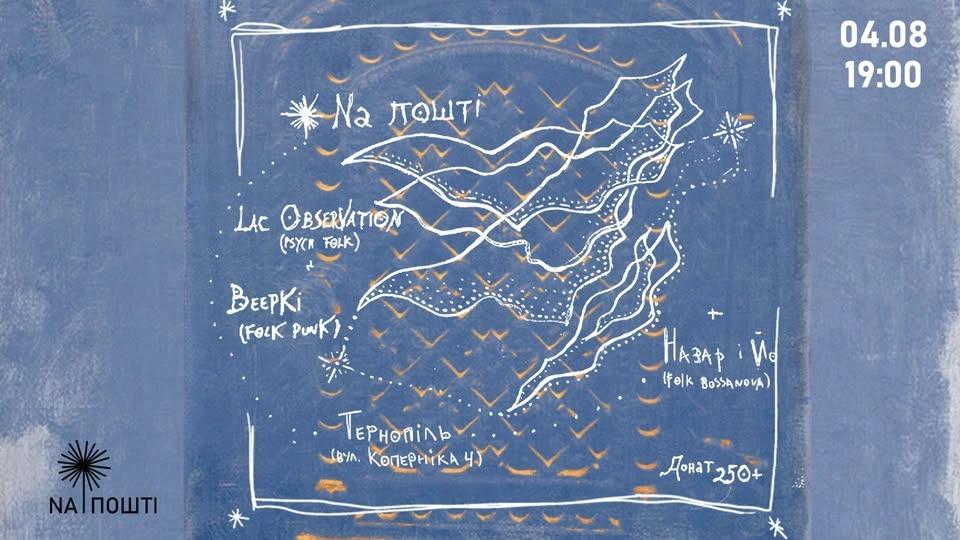 04.08
19:00
Na пошті
Lac Observation
(psych folk)
+
Веєркі
(folk punk)
+
Назар і Йо
(folk bossanova)
Тернопіль
(вул. Коперніка 4)
Донат 250+
NA ПОШТІ